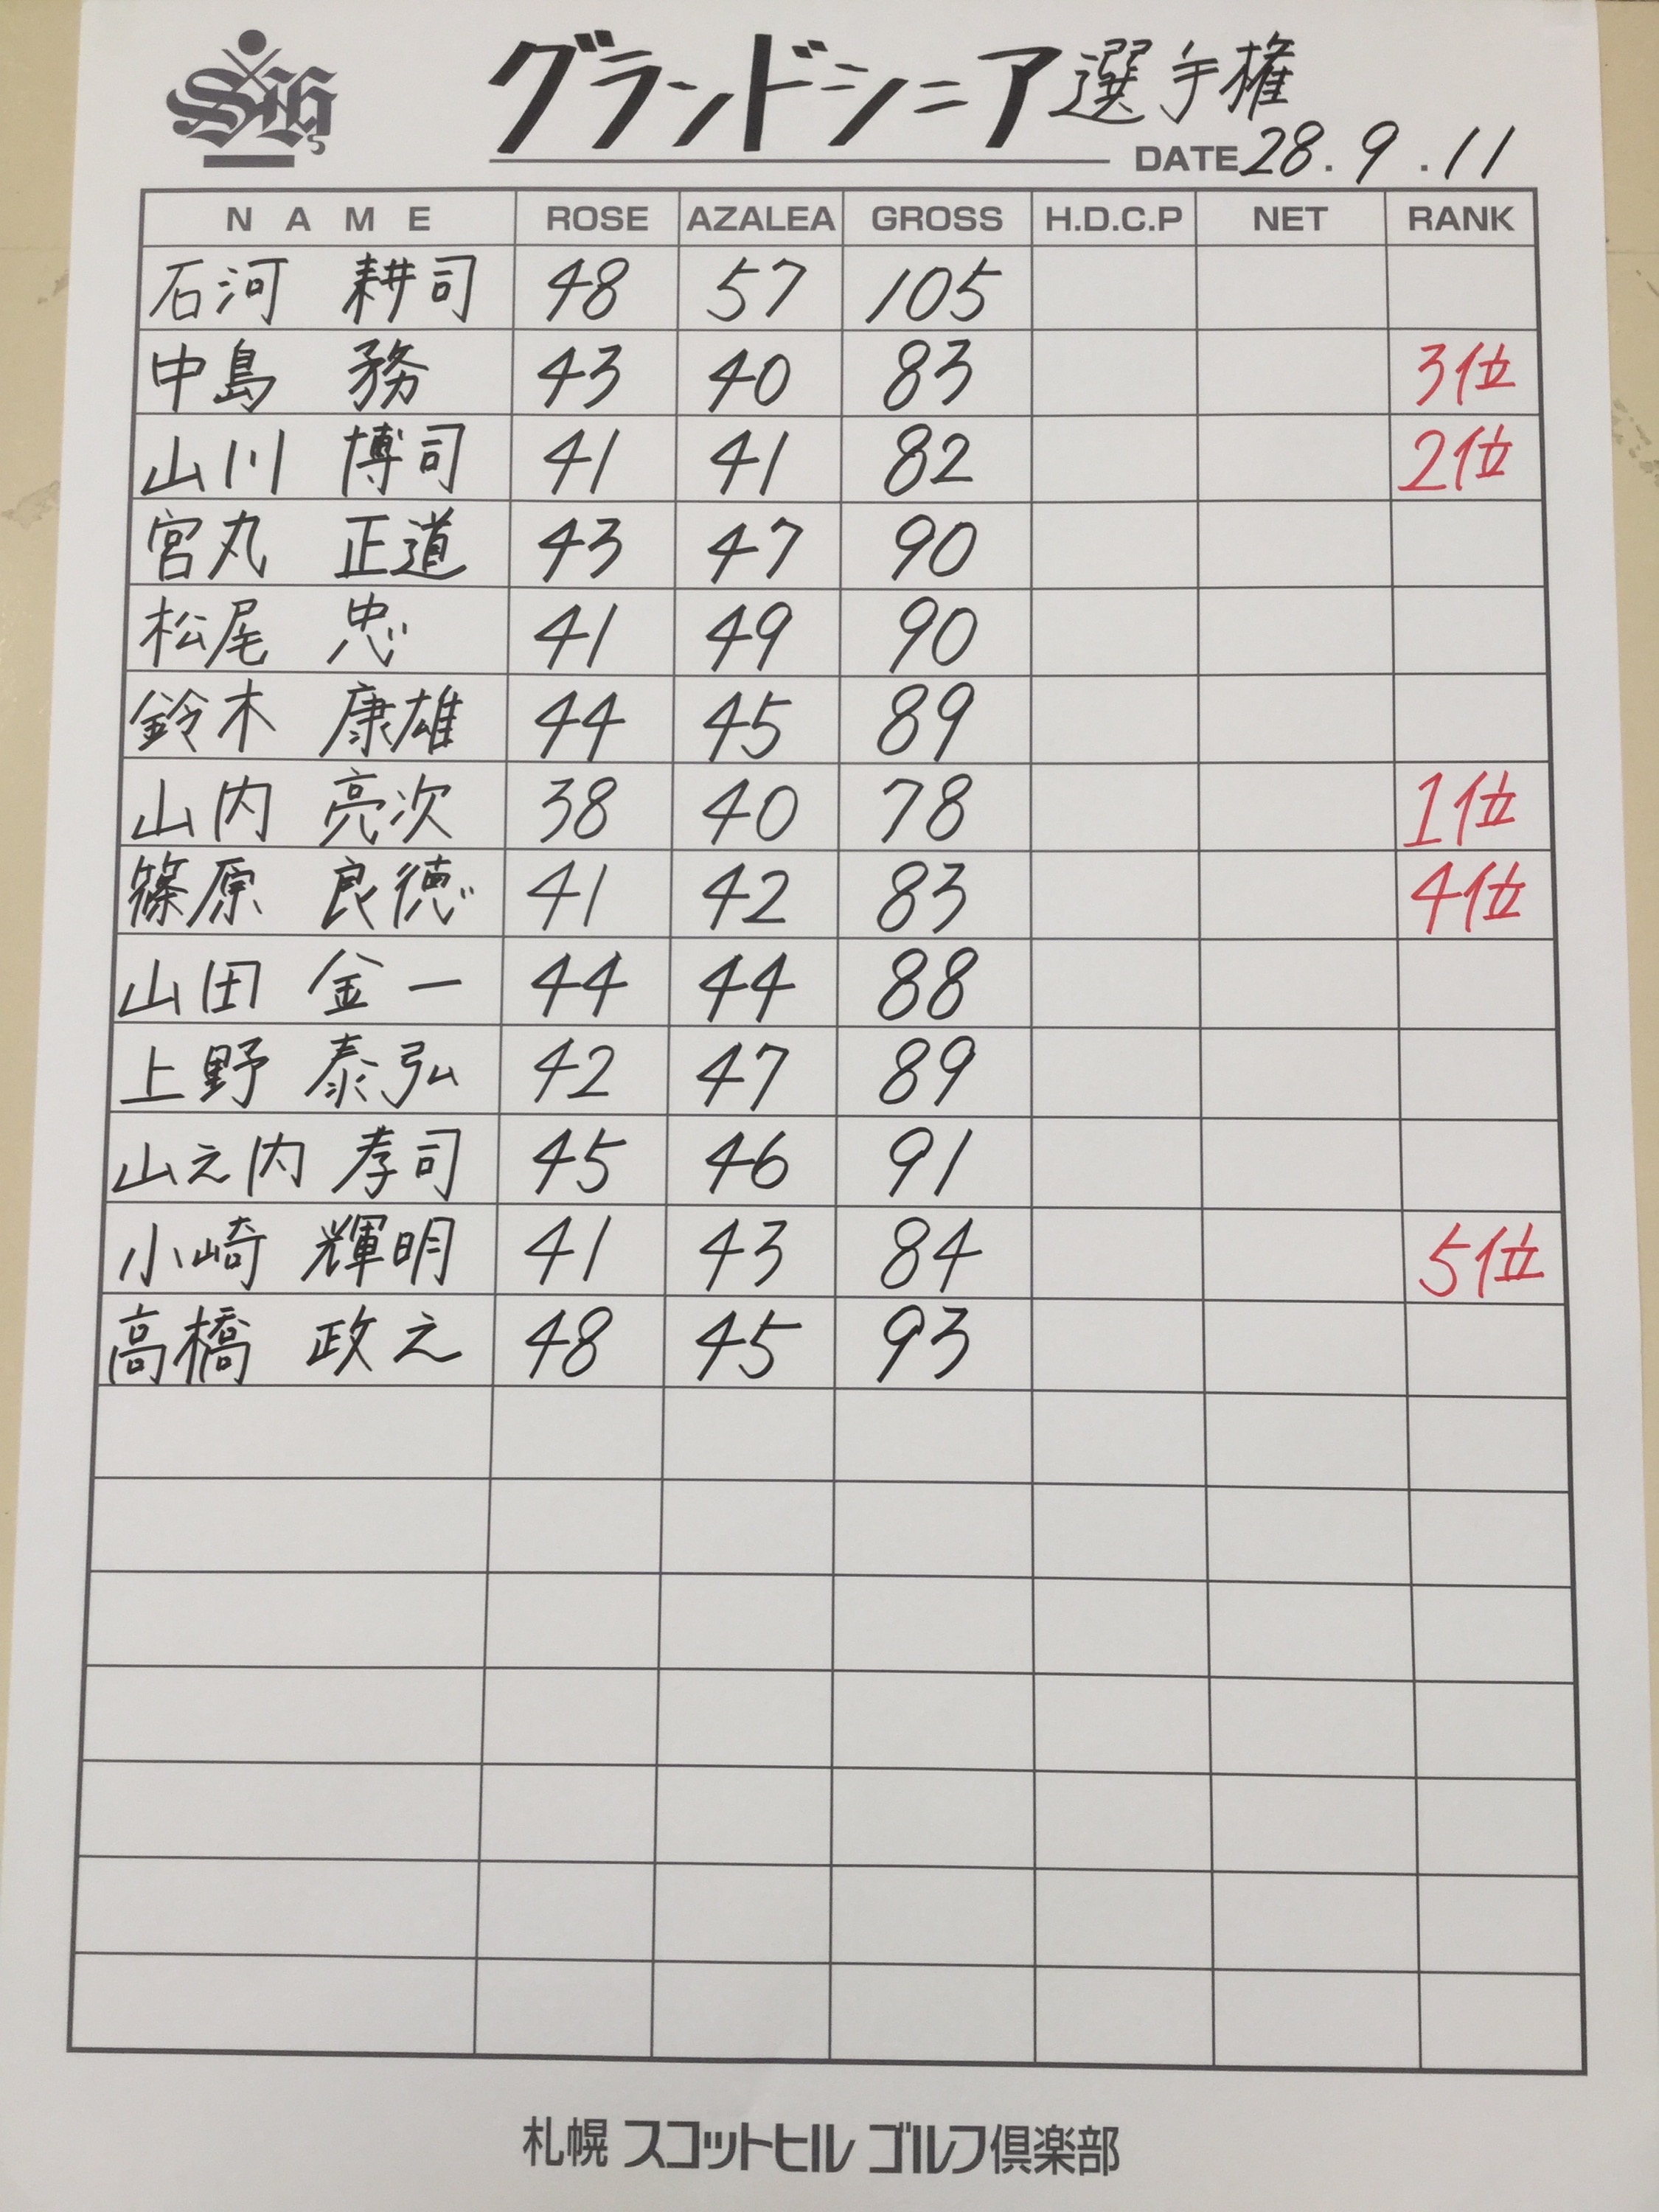 SHG
グランドシニア選手権
DATE 28.9.11
NAME ROSE AZALEA GROSS H.D.C.P NET RANK
石河 耕司 48 57 105
中島 務 43 40 83 3位
山川 博司 41 41 82 2位
宮丸 正道 43 47 90
松尾 忠 41 49 90
鈴木 康雄 44 45 89
山内 亮次 38 40 78 1位
篠原 良徳 41 42 83 4位
山田 金一 44 44 88
上野 泰弘 42 47 89
山之内 孝司 45 46 91
小崎 輝明 41 43 84 5位
高橋 政之 48 45 93
札幌 スコットヒル ゴルフ倶楽部